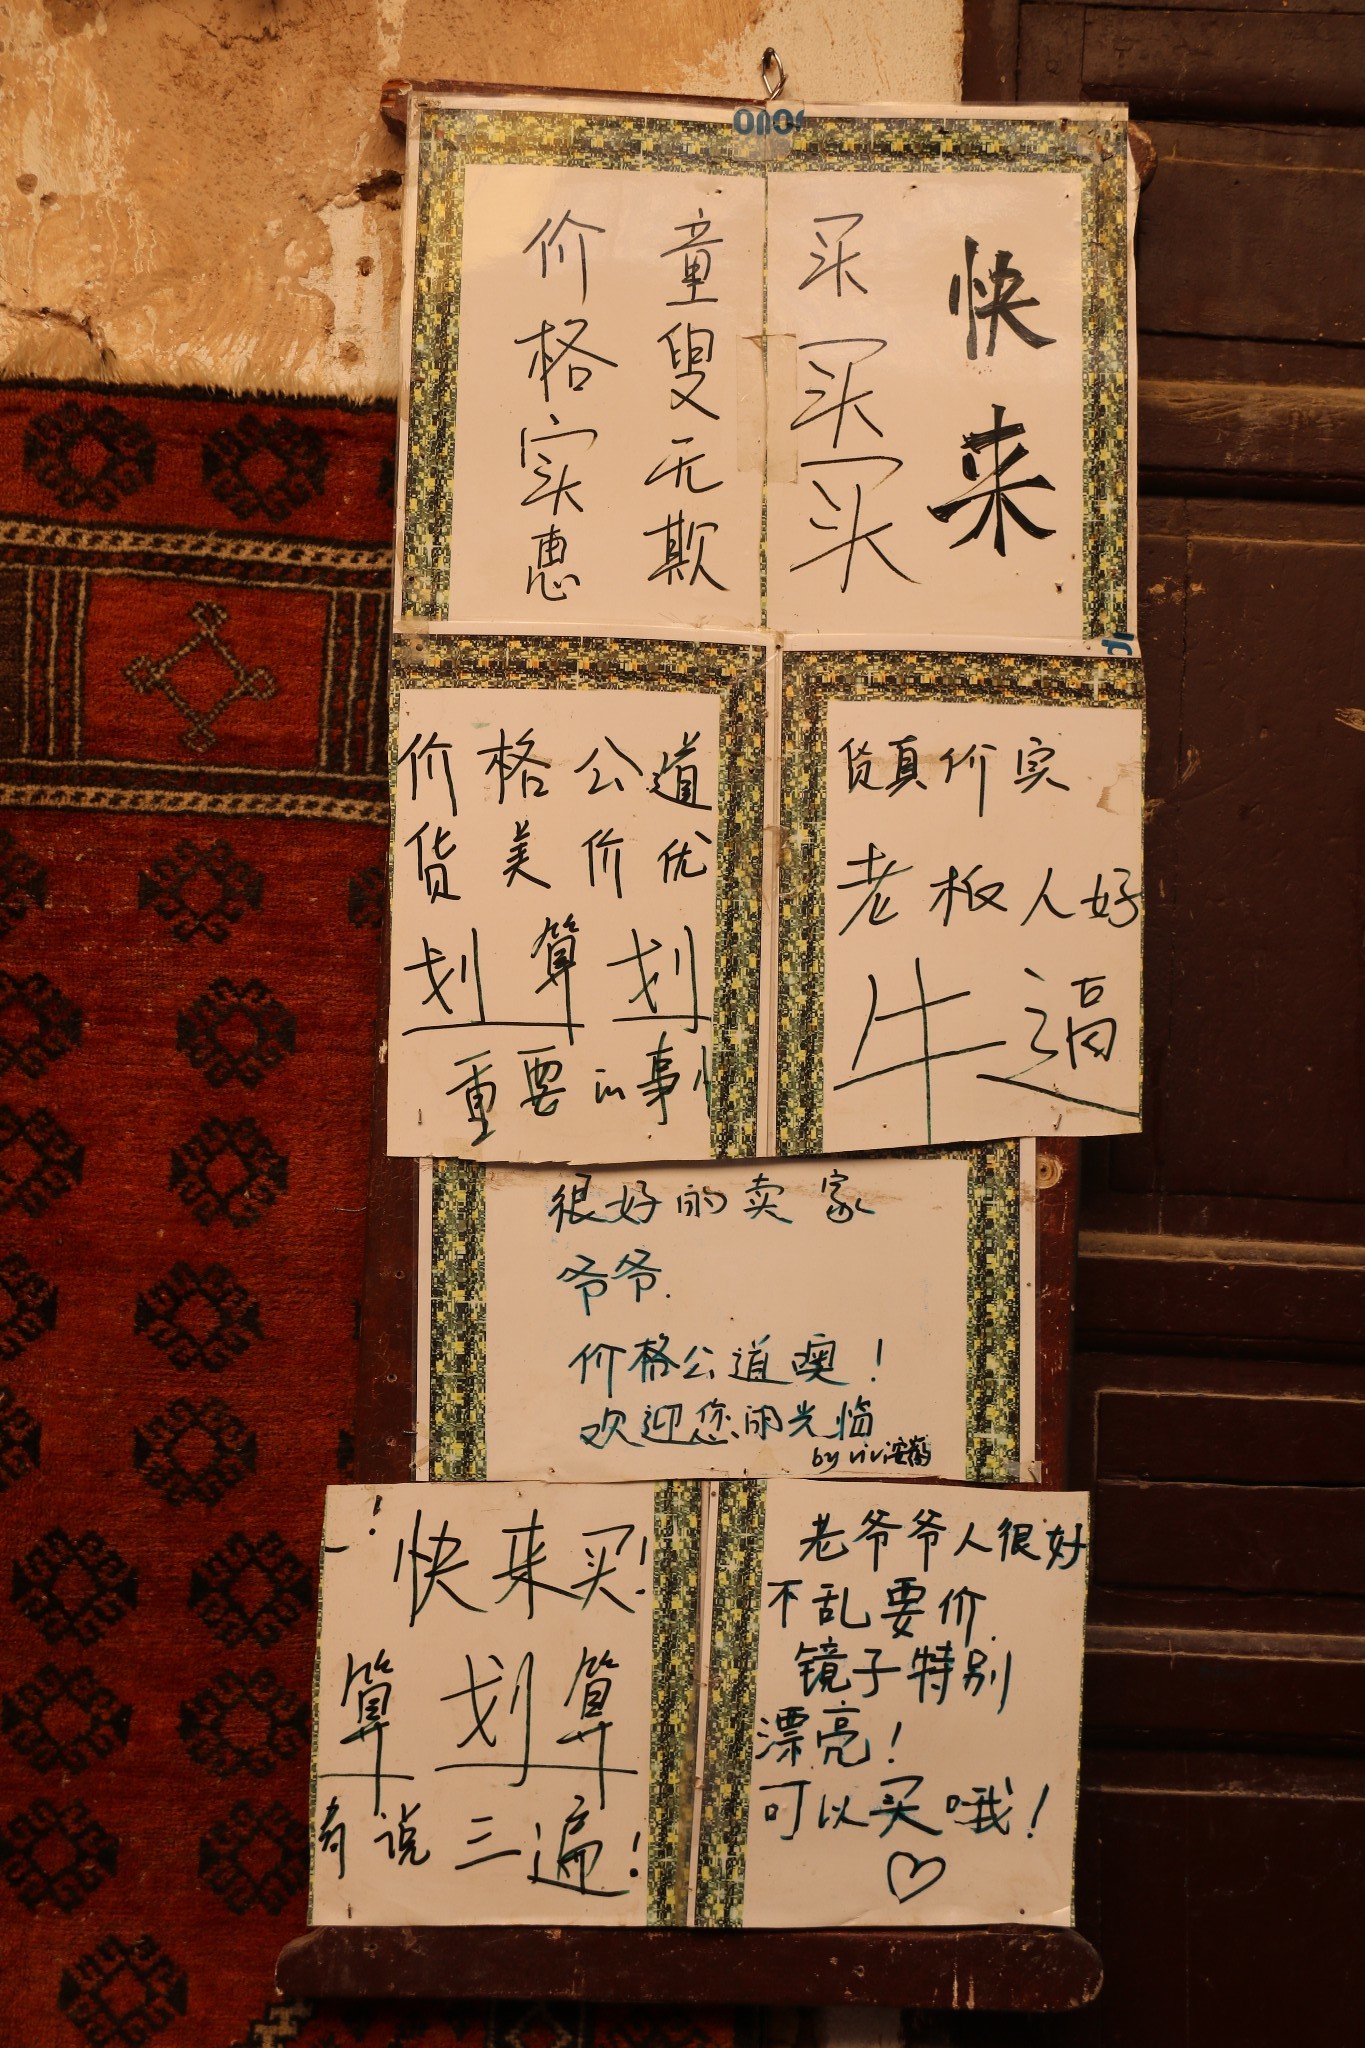 快来
买买买
童叟无欺
价格实惠
价格公道
货美价优
划算划
重要的事
货真价实
老板人好
牛逼
很好的卖家
爷爷.
价格公道噢！
欢迎您的光临
by vivi安徽
！快来买！
算划算
说三遍！
老爷爷人很好
不乱要价.
镜子特别
漂亮！
可以买哦！